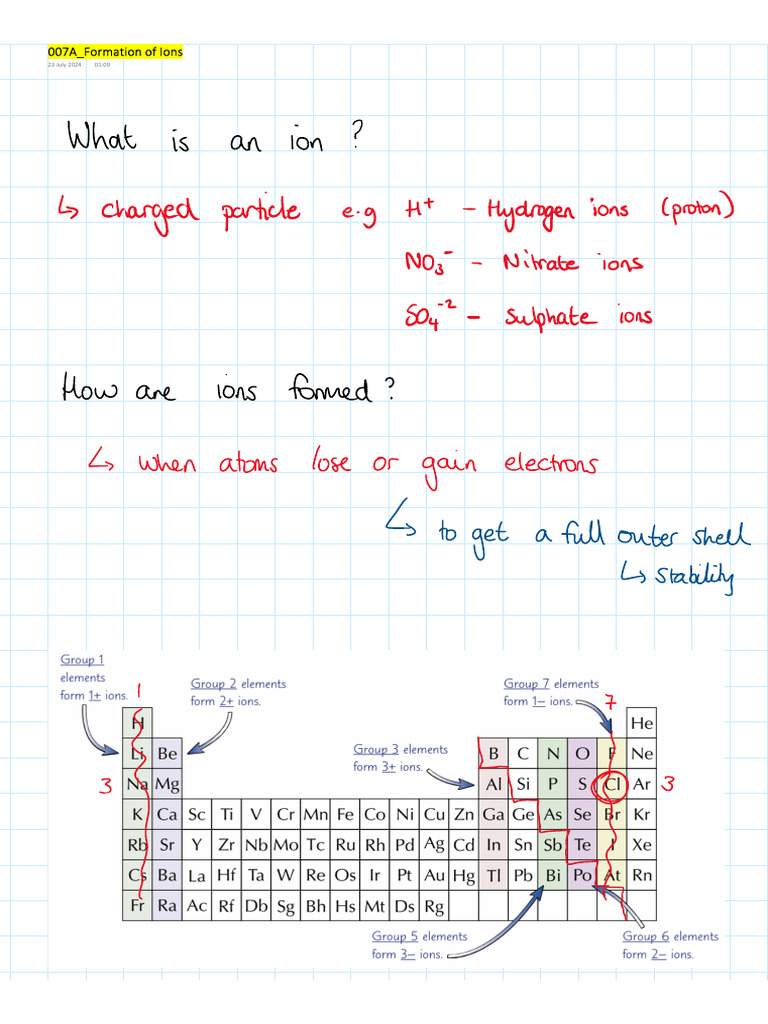 007A_Formation of Ions
23 July 2024 01:09
What is an ion ?
↳ charged particle e.g H⁺ – Hydrogen ions (proton)
NO₃⁻ – Nitrate ions
SO₄⁻² – Sulphate ions
How are ions formed ?
↳ when atoms lose or gain electrons
↳ to get a full outer shell
↳ stability
Group 1
elements
form 1+ ions.
1
Group 2 elements
form 2+ ions.
Group 7 elements
form 1– ions.
7
Group 3 elements
form 3+ ions.
H He
Li Be B C N O F Ne
3 Na Mg Al Si P S Cl Ar 3
K Ca Sc Ti V Cr Mn Fe Co Ni Cu Zn Ga Ge As Se Br Kr
Rb Sr Y Zr Nb Mo Tc Ru Rh Pd Ag Cd In Sn Sb Te I Xe
Cs Ba La Hf Ta W Re Os Ir Pt Au Hg Tl Pb Bi Po At Rn
Fr Ra Ac Rf Db Sg Bh Hs Mt Ds Rg
Group 5 elements
form 3– ions.
Group 6 elements
form 2– ions.